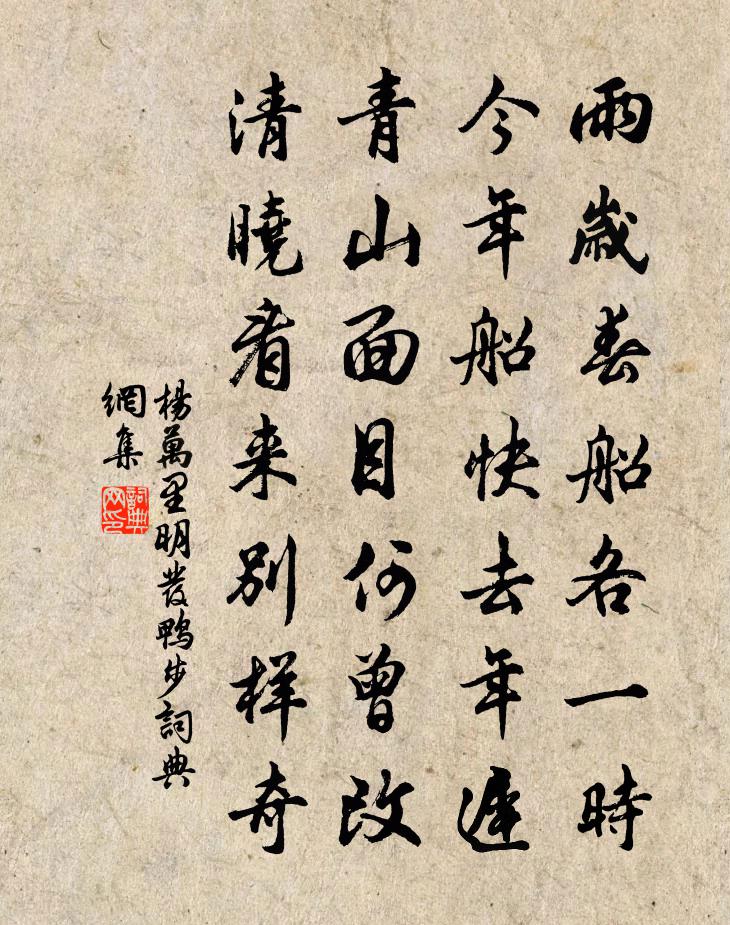 兩歲春船各一時
今年船快去年遲
青山面目何曾改
清曉看来別样奇
楊萬里明發鴨步詞典
網集
詞典
网印